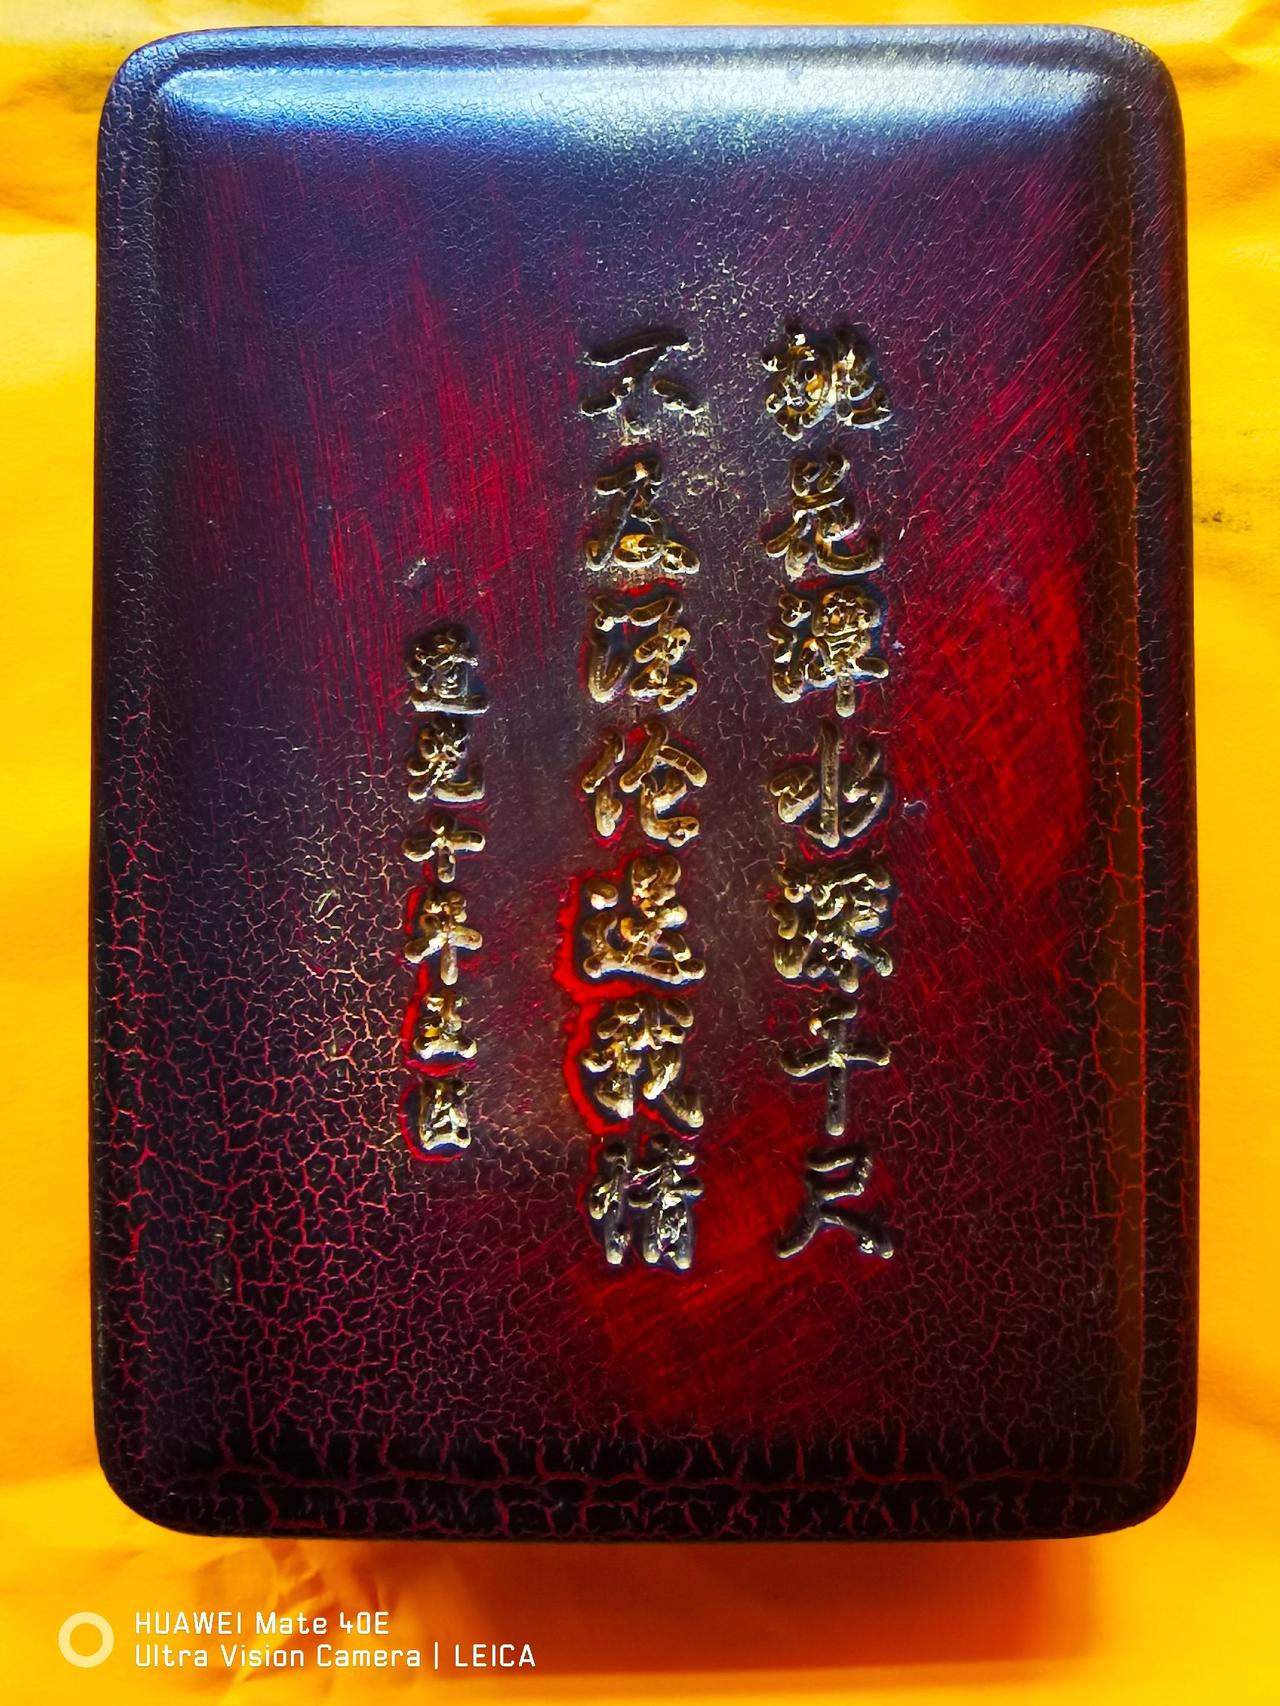 桃花潭水深千尺
不及汪伦送我情
道光十年王
HUAWEI Mate 40E
Ultra Vision Camera | LEICA